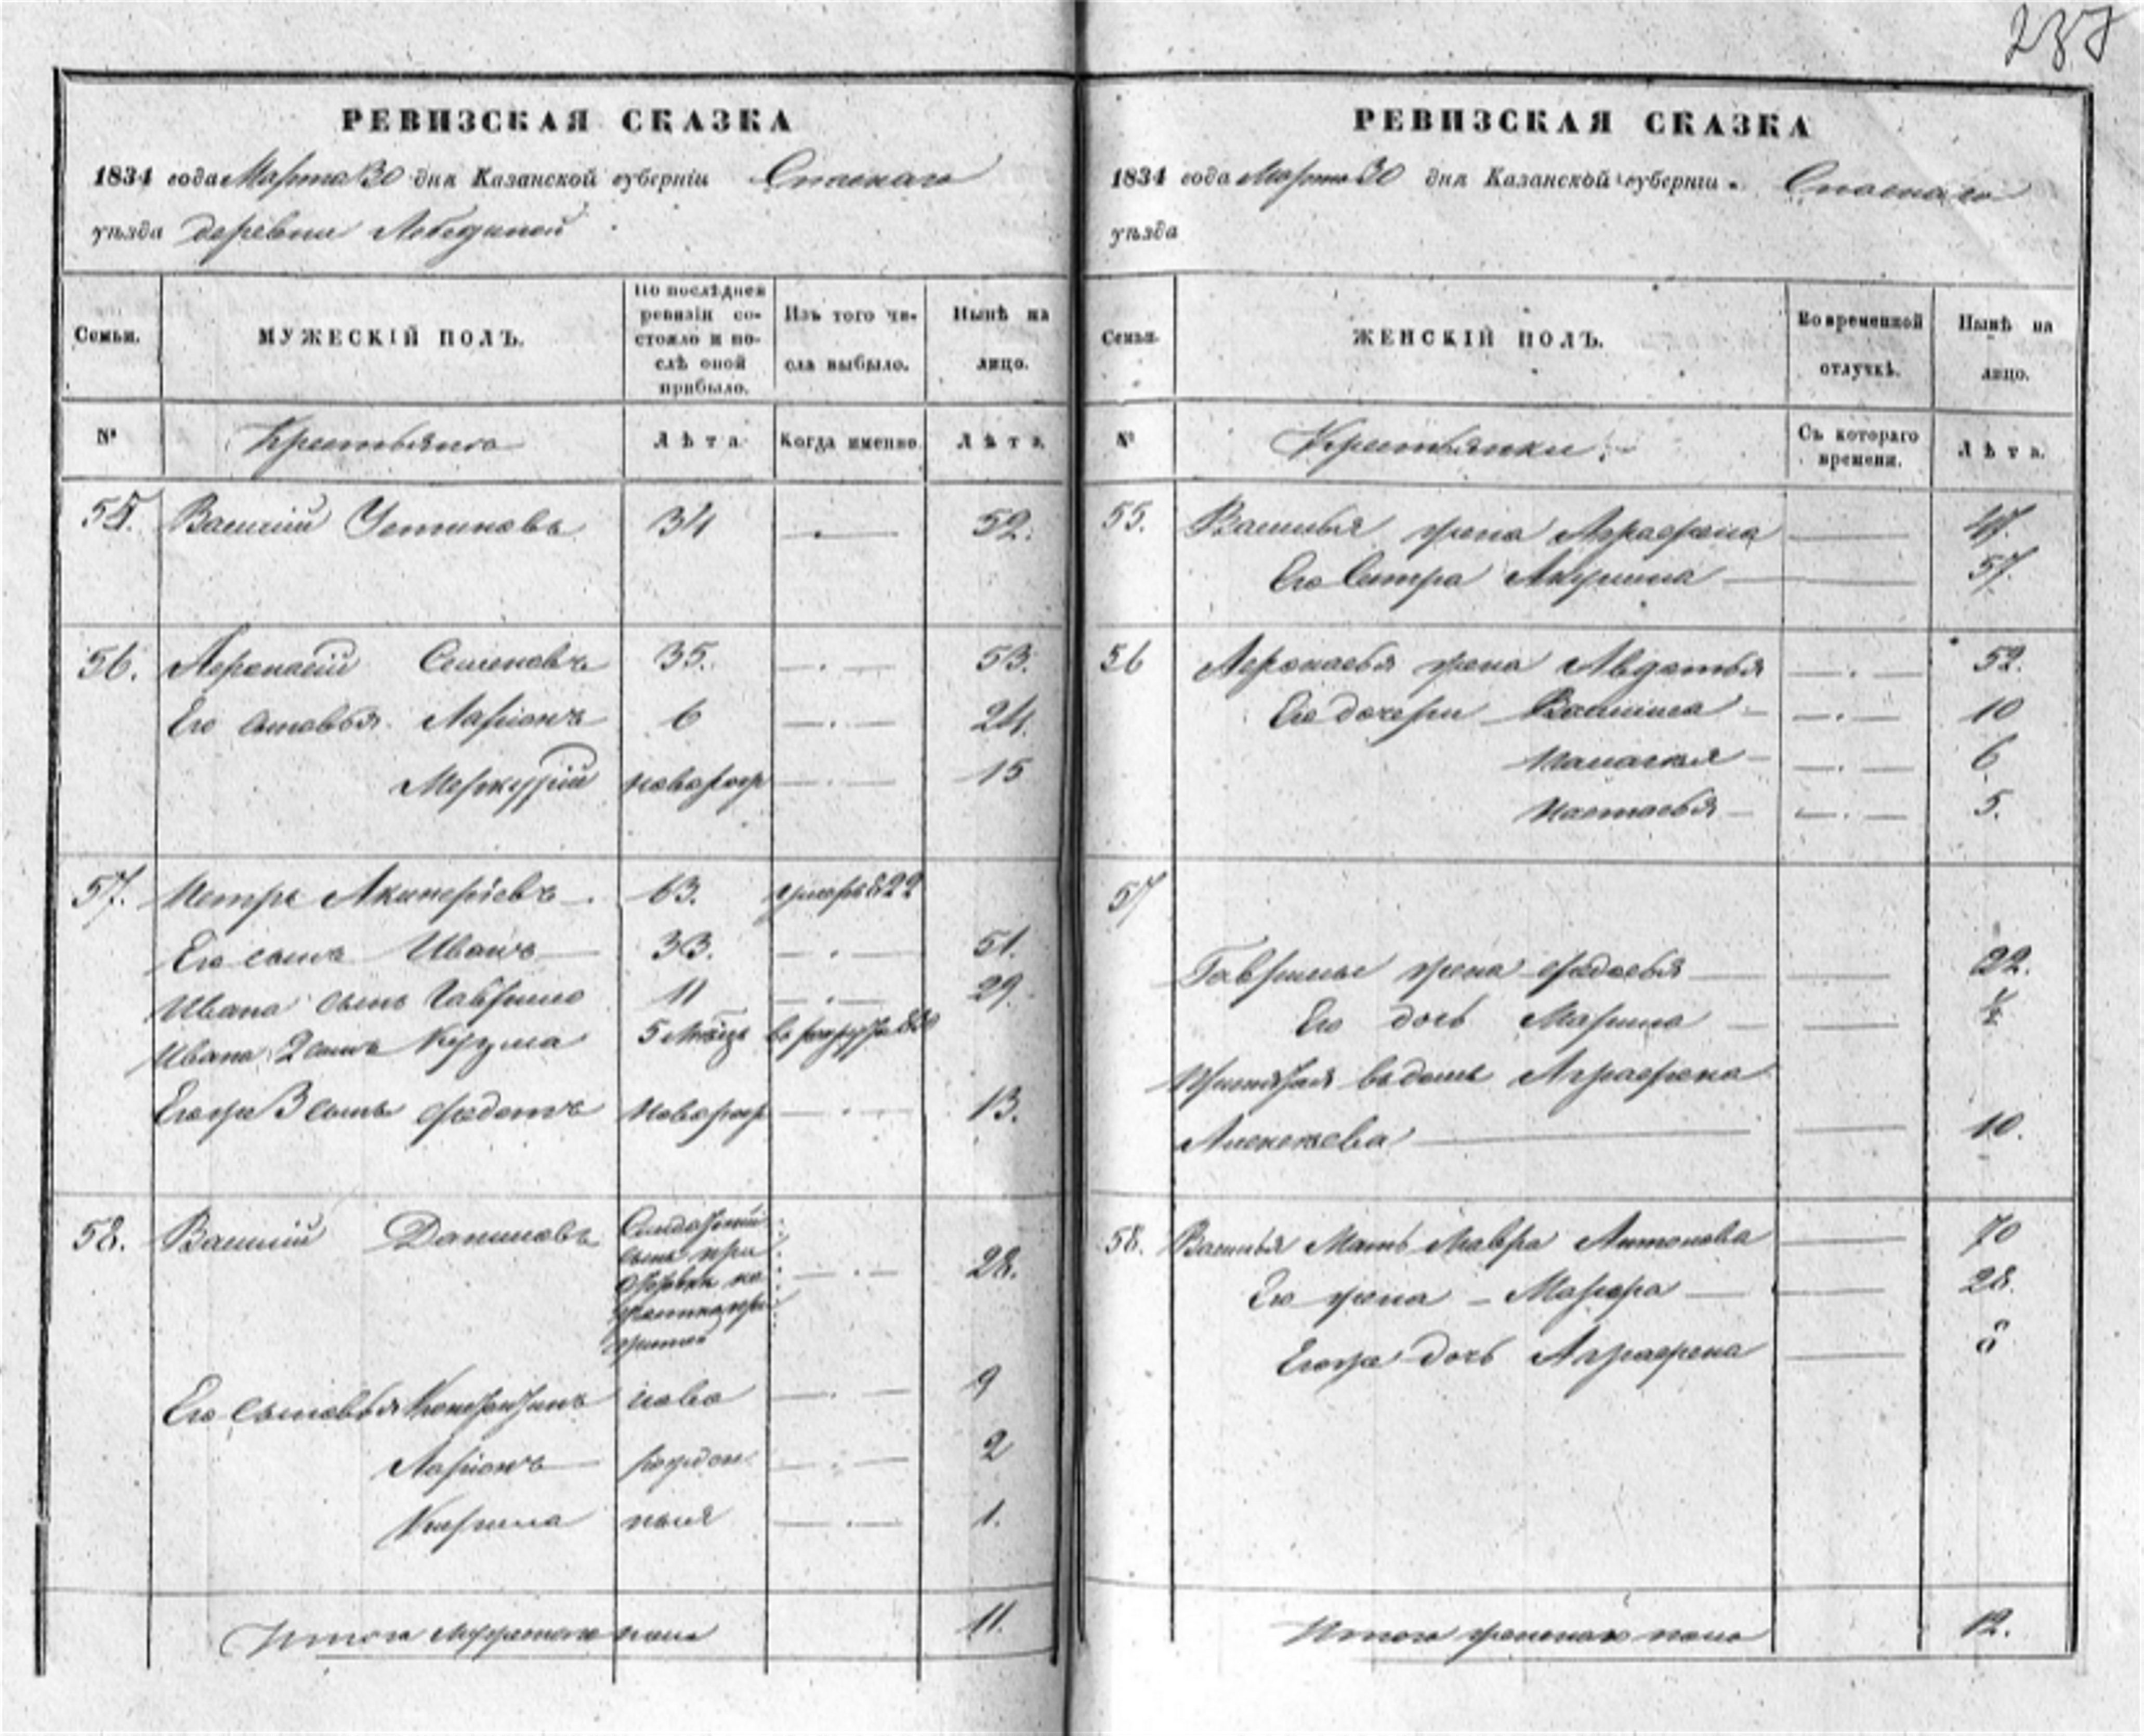 287
РЕВИЗСКАЯ СКАЗКА
1834 года Марта 30 дня Казанской губерніи Спаскаго
уѣзда деревни Лебединой
Семьи.
МУЖЕСКІЙ ПОЛЪ.
По послѣдней
ревизіи со-
стояло и по-
слѣ оной
прибыло.
Изъ того чи-
сла выбыло.
Нынѣ на
лицо.
№
Крестьяне
Лѣта
Когда именно.
Лѣта.
55. Василий Устиновъ 34 — 52.
56. Афонасий Семеновъ 35. — 53.
Его сыновья Ларіонъ 6 — 24.
Меркурій новорож — 15
57. Петръ Акинфіевъ 63. умеръ 822
Его сынъ Иванъ 33. — 51.
Ивана сынъ Гаврило 11 — 29.
Ивана 2 сынъ Кузма 5 Мѣсяц
Егоже 3 сынъ Федотъ новорож — 13.
58. Василий Даниловъ Солдатский
сынъ при — 28.
Его сыновья Констянтинъ ново — 9
Ларіонъ рожден — 2
Кирила ныя — 1.
Итого мужеска пола 11.
РЕВИЗСКАЯ СКАЗКА
1834 года Марта 30 дня Казанской губерніи Спаскаго
уѣзда
Семьи.
ЖЕНСКІЙ ПОЛЪ.
Во временной
отлучкѣ.
Нынѣ на
лицо.
№
Крестьянки
Съ котораго
времени.
Лѣта.
55. Василья жена Аграфена — 47.
Его Сестра Акулина — 57.
56 Афонасья жена Авдотья — 52.
Его дочери Василиса — 10
Палагия — 6
Настасья — 5.
57
Гаврилы жена Федосья — 22.
Его дочь Марина — ½
Принятая въ домъ Аграфена
Алексеева — 10.
58. Василья Мать Мавра Антонова — 70
Его жена — Марфа — 28.
Егоже дочь Аграфена — 8
Итого женска пола 12.